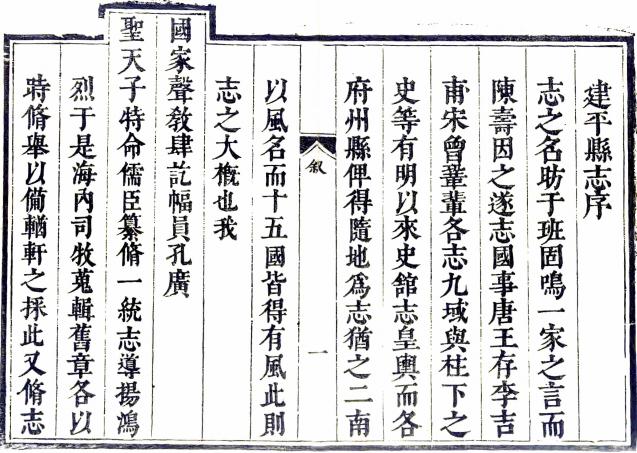 建平縣志序
志之名昉于班固鳴一家之言而
陳壽因之遂志國事唐王存李吉
甫宋曾鞏輩各志九域與柱下之
史等有明以來史館志皇輿而各
府州縣俾得隨地為志猶之二南
敘
一
以風名而十五國皆得有風此則
志之大概也我
國家聲敎肆訖幅員孔廣
聖天子特命儒臣纂脩一統志導揚鴻
烈于是海內司牧蒐輯舊章各以
時脩舉以備輶軒之採此又脩志